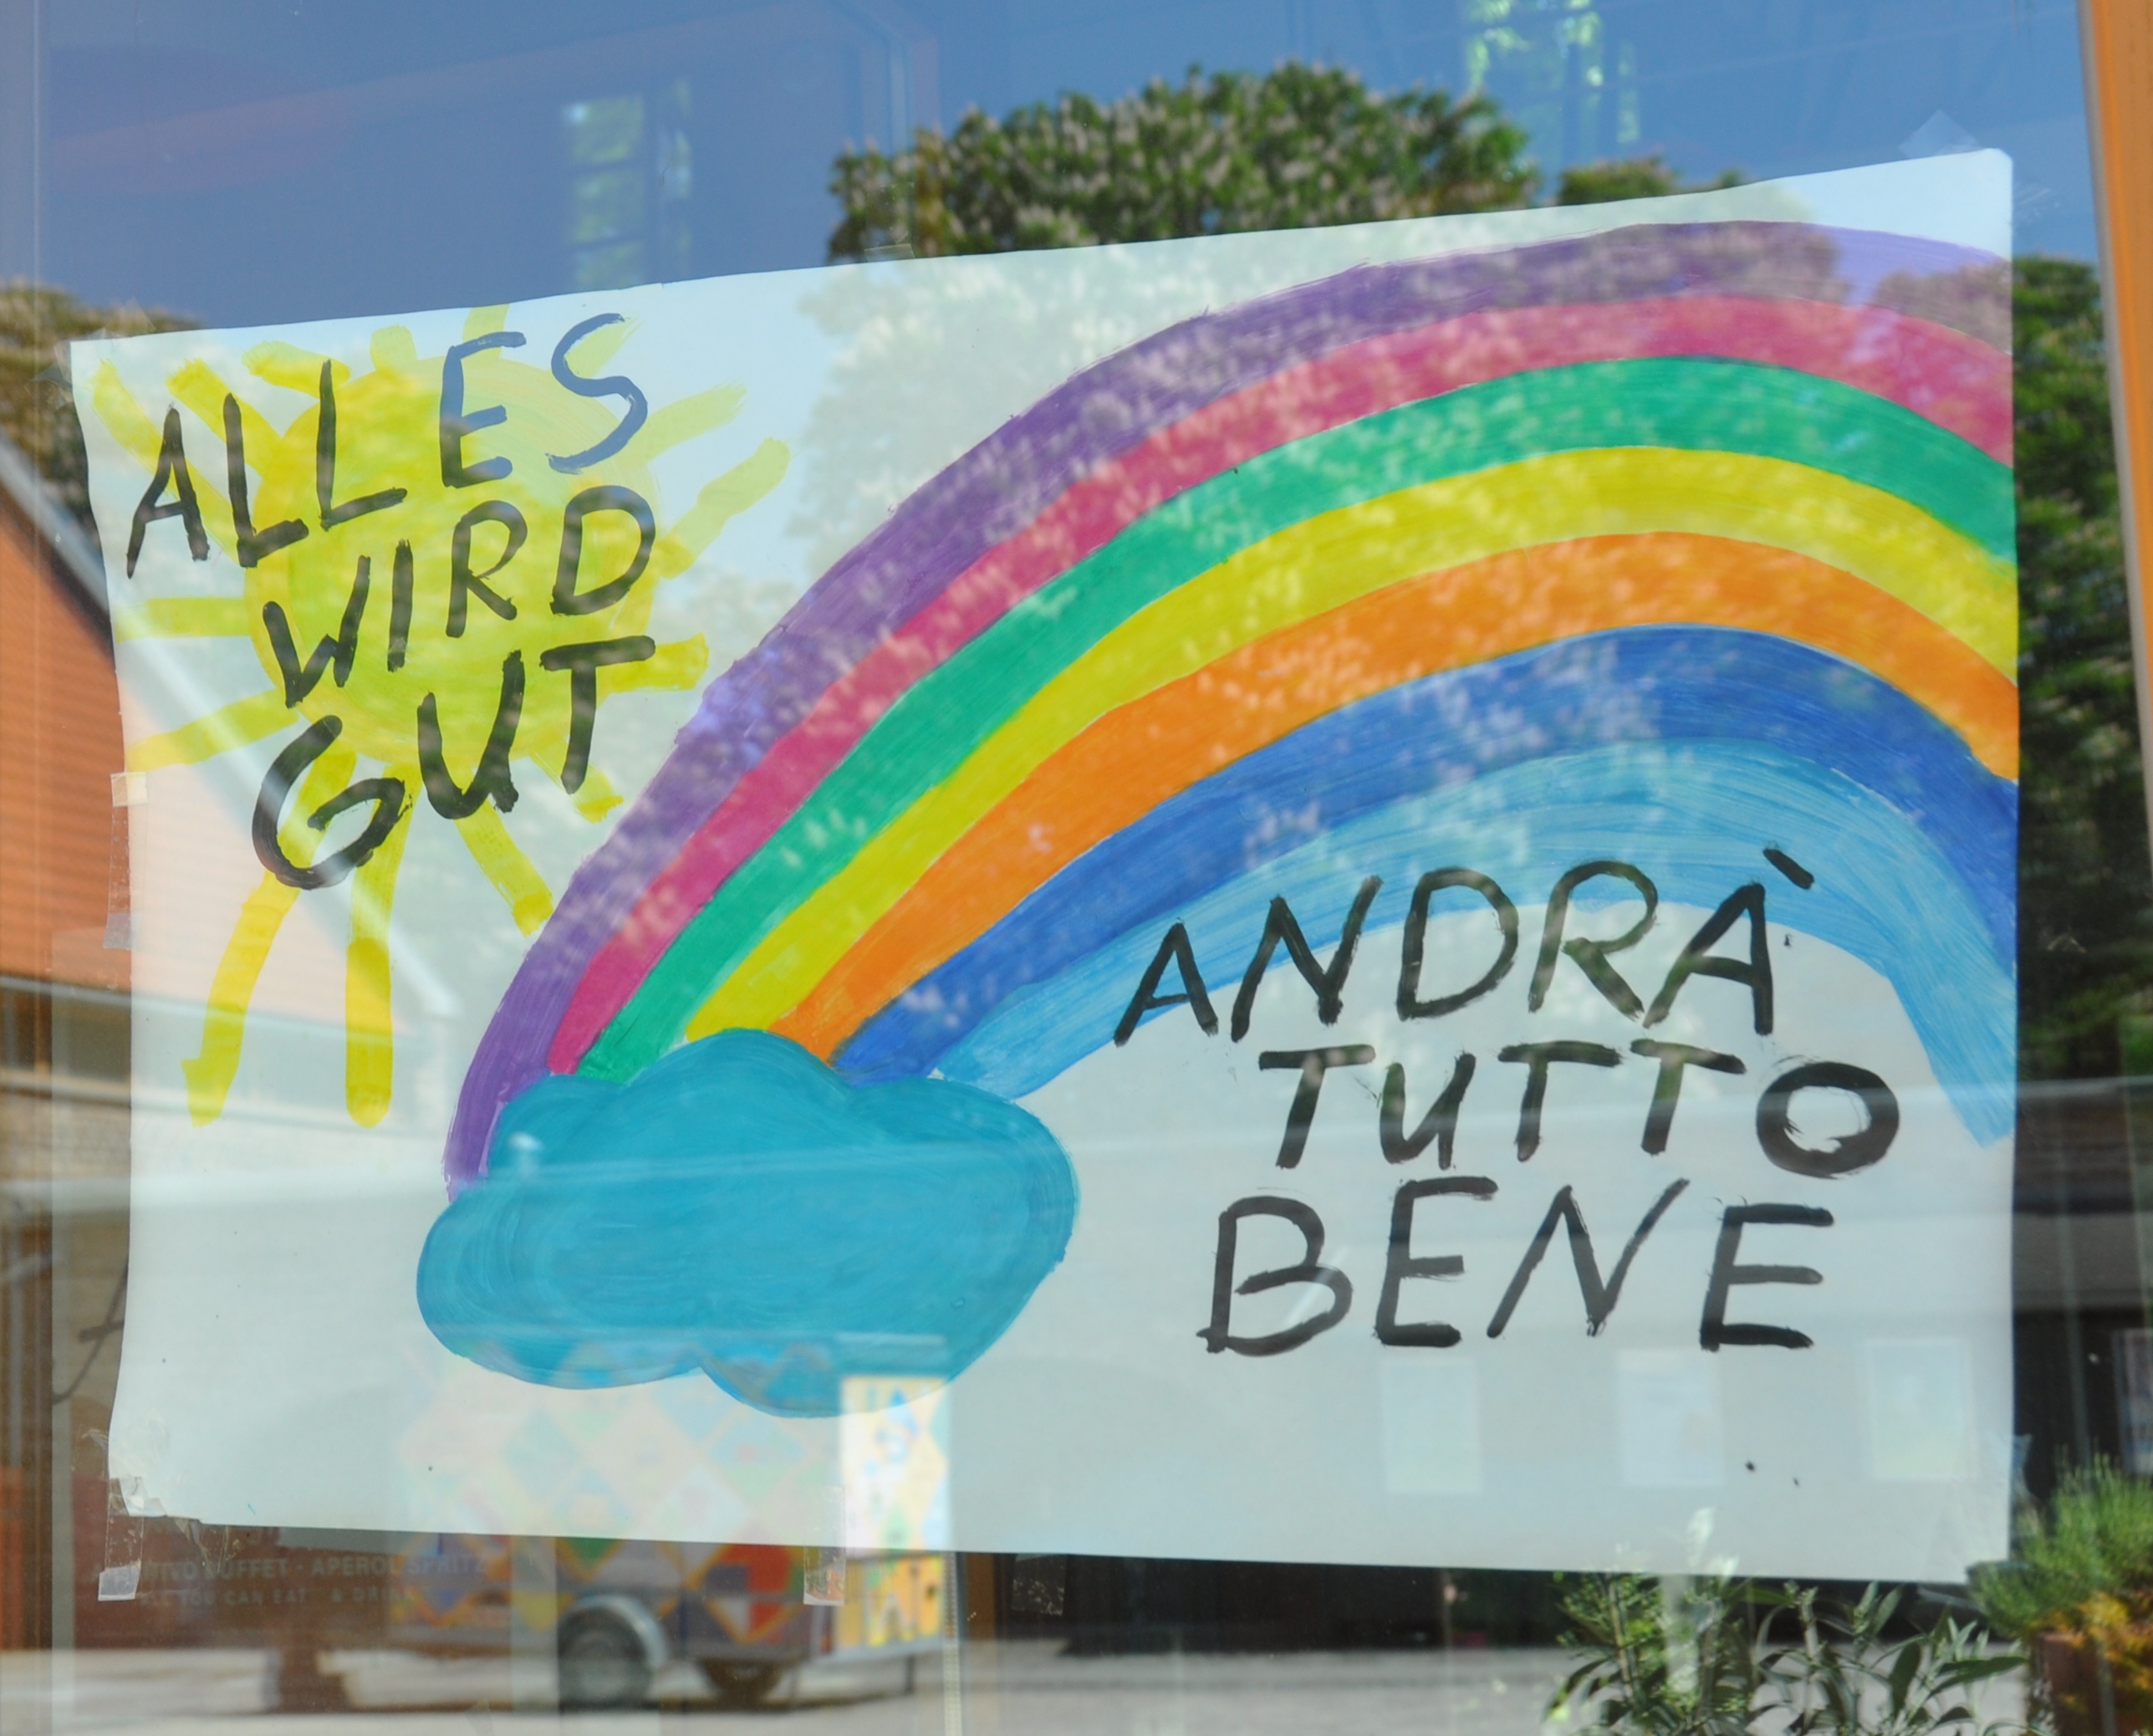 ALLES
WIRD
GUT
ANDRÀ
TUTTO
BENE
BUFFET - APEROL SPRITZ
YOU CAN EAT & DRINK